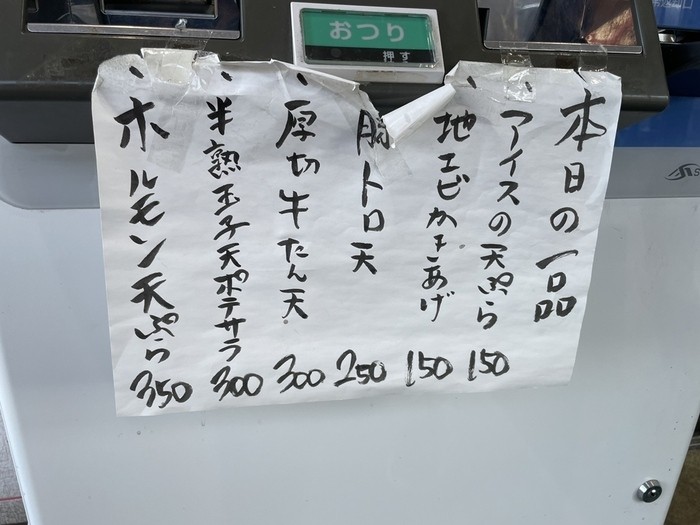 おつり
押す
本日の一品
・アイスの天ぷら 150
・地エビかきあげ 150
豚トロ天 250
・厚切牛たん天 300
・半熟玉子天ポテサラ 300
・ホルモン天ぷら 350